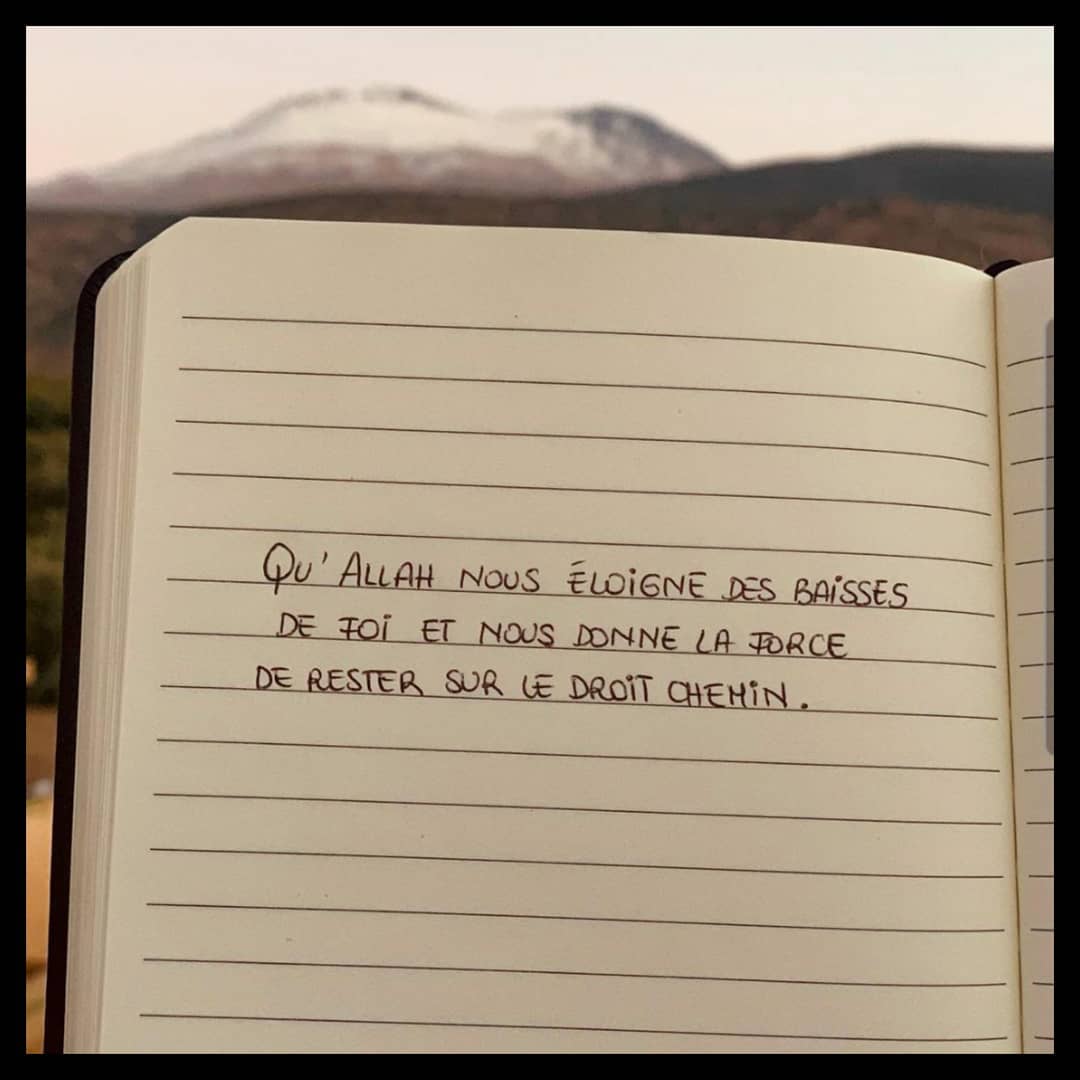 QU'ALLAH NOUS ÉLOIGNE DES BAISSES
DE FOI ET NOUS DONNE LA FORCE
DE RESTER SUR LE DROIT CHEMIN.